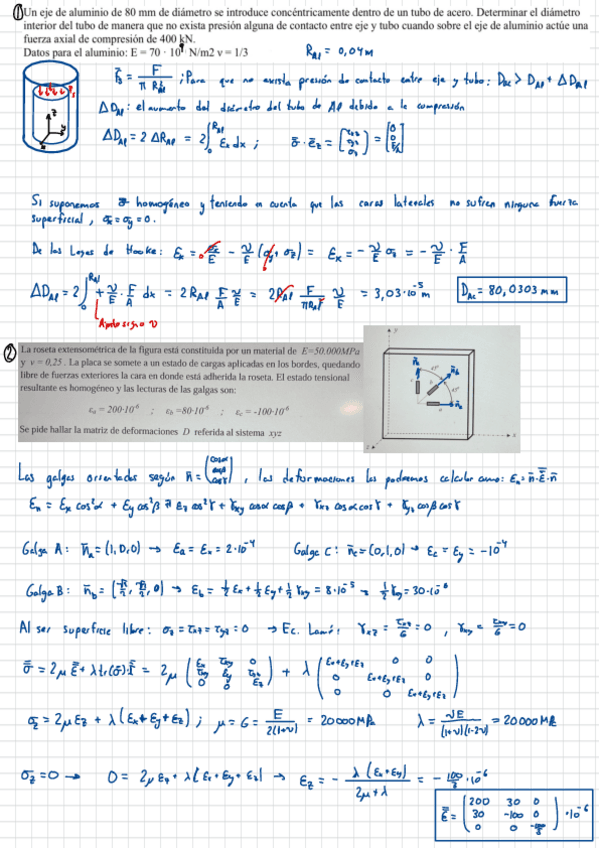 ① Un eje de aluminio de 80 mm de diámetro se introduce concéntricamente dentro de un tubo de acero. Determinar el diámetro
interior del tubo de manera que no exista presión alguna de contacto entre eje y tubo cuando sobre el eje de aluminio actúe una
fuerza axial de compresión de 400 kN.
Datos para el aluminio: E = 70 · 10⁹ N/m2 ν = 1/3
R_Al = 0,04m
= F / π R²_Al ; Para que no exista presión de contacto entre eje y tubo: D_ac > D_Al + ΔD_Al
ΔD_Al: el aumento del diámetro del tubo de Al debido a la compresión
ΔD_Al = 2 ΔR_Al = 2∫₀^{R_Al} ε_x dx ;
Si suponemos homogéneo y teniendo en cuenta que las caras laterales no sufren ninguna fuerza
superficial, σ_x = σ_y = 0.
De las Leyes de Hooke: ε_x = σ_x/E - ν/E (σ_y + σ_z) = ε_x = - ν/E σ_z = - ν/E · F/A
ΔD_Al = 2∫₀^{R_Al} + ν/E · F/A dx = 2 R_Al F/A ν/E = 2R_Al F/πR_Al² ν/E = 3,03·10⁻⁵ m
D_Ac = 80,0303 mm
signo
② La roseta extensométrica de la figura está constituida por un material de E=50.000MPa
y ν = 0,25 . La placa se somete a un estado de cargas aplicadas en los bordes, quedando
libre de fuerzas exteriores la cara en donde está adherida la roseta. El estado tensional
resultante es homogéneo y las lecturas de las galgas son:
ε_a = 200·10⁻⁶ ; ε_b =80·10⁻⁶ ; ε_c = -100·10⁻⁶
Se pide hallar la matriz de deformaciones D referida al sistema xyz
y
45º
45º
b
a
x
z
Las galgas orientadas según n̄ = (cosα cosβ cosγ), las deformaciones las podremos calcular como: ε_n = n̄·Ē·n̄
ε_n = ε_x cos²α + ε_y cos²β + ε_z cos²γ + γ_xy cosα cosβ + γ_xz cosα cosγ + γ_yz cosβ cosγ
Galga A: n̄_a = (1,0,0) → ε_a = ε_x = 2·10⁻⁴
Galga C: n̄_c = (0,1,0) → ε_c = ε_y = -10⁻⁴
Galga B: n̄_b = (√2/2, √2/2, 0) → ε_b = ½ ε_x + ½ ε_y + ½ γ_xy = 8·10⁻⁵ → ½ γ_xy = 30·10⁻⁶
Al ser superficie libre: σ_z = τ_xz = τ_yz = 0 → Ec. Lamé:
σ_z = 2μ ε_z + λ(ε_x + ε_y + ε_z) ; μ = G = E / 2(1+ν) = 20000 MPa λ = νE / (1+ν)(1-2ν) = 20000 MPa
σ_z = 0 → 0 = 2μ ε_z + λ(ε_x + ε_y + ε_z) → ε_z = - λ(ε_x + ε_y) / 2μ + λ = - 100/3 · 10⁻⁶
Ē = (200 30 0
30 -100 0
0 0 -100/3) · 10⁻⁶